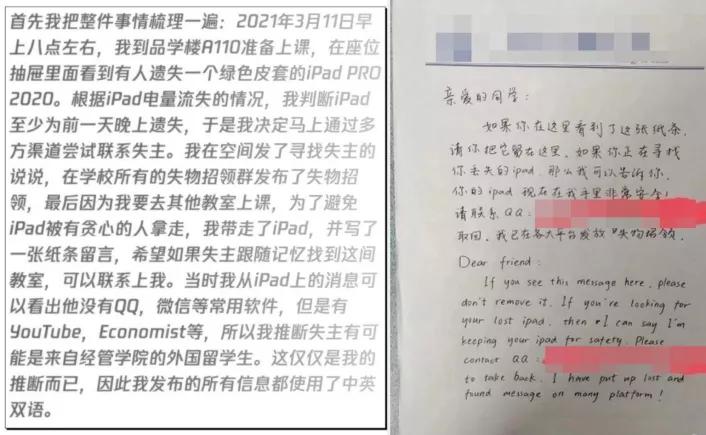 首先我把整件事情梳理一遍：2021年3月11日早
上八点左右，我到品学楼A110准备上课，在座位
抽屉里面看到有人遗失一个绿色皮套的iPad PRO
2020。根据iPad电量流失的情况，我判断iPad
至少为前一天晚上遗失，于是我决定马上通过多
方渠道尝试联系失主。我在空间发了寻找失主的
说说，在学校所有的失物招领群发布了失物招
领，最后因为我要去其他教室上课，为了避免
iPad被有贪心的人拿走，我带走了iPad，并写了
一张纸条留言，希望如果失主跟随记忆找到这间
教室，可以联系上我。当时我从iPad上的消息可
以看出他没有QQ，微信等常用软件，但是有
YouTube，Economist等，所以我推断失主有可
能是来自经管学院的外国留学生。这仅仅是我的
推断而已，因此我发布的所有信息都使用了中英
双语。
亲爱的同学：
如果你在这里看到了这张纸条，
请你把它留在这里。如果你正在寻找
你丢失的ipad，那么我可以告诉你，
你的ipad现在在我手里非常安全！
请联系QQ：
取回，我已在各大平台发放"失物招领。
Dear friend:
If you see this message here, please
don't remove it. If you're looking for
your lost ipad, then I can say I'm
keeping your ipad for safety. Please
contact QQ:
to take back. I have put up lost and
found message on many platform!